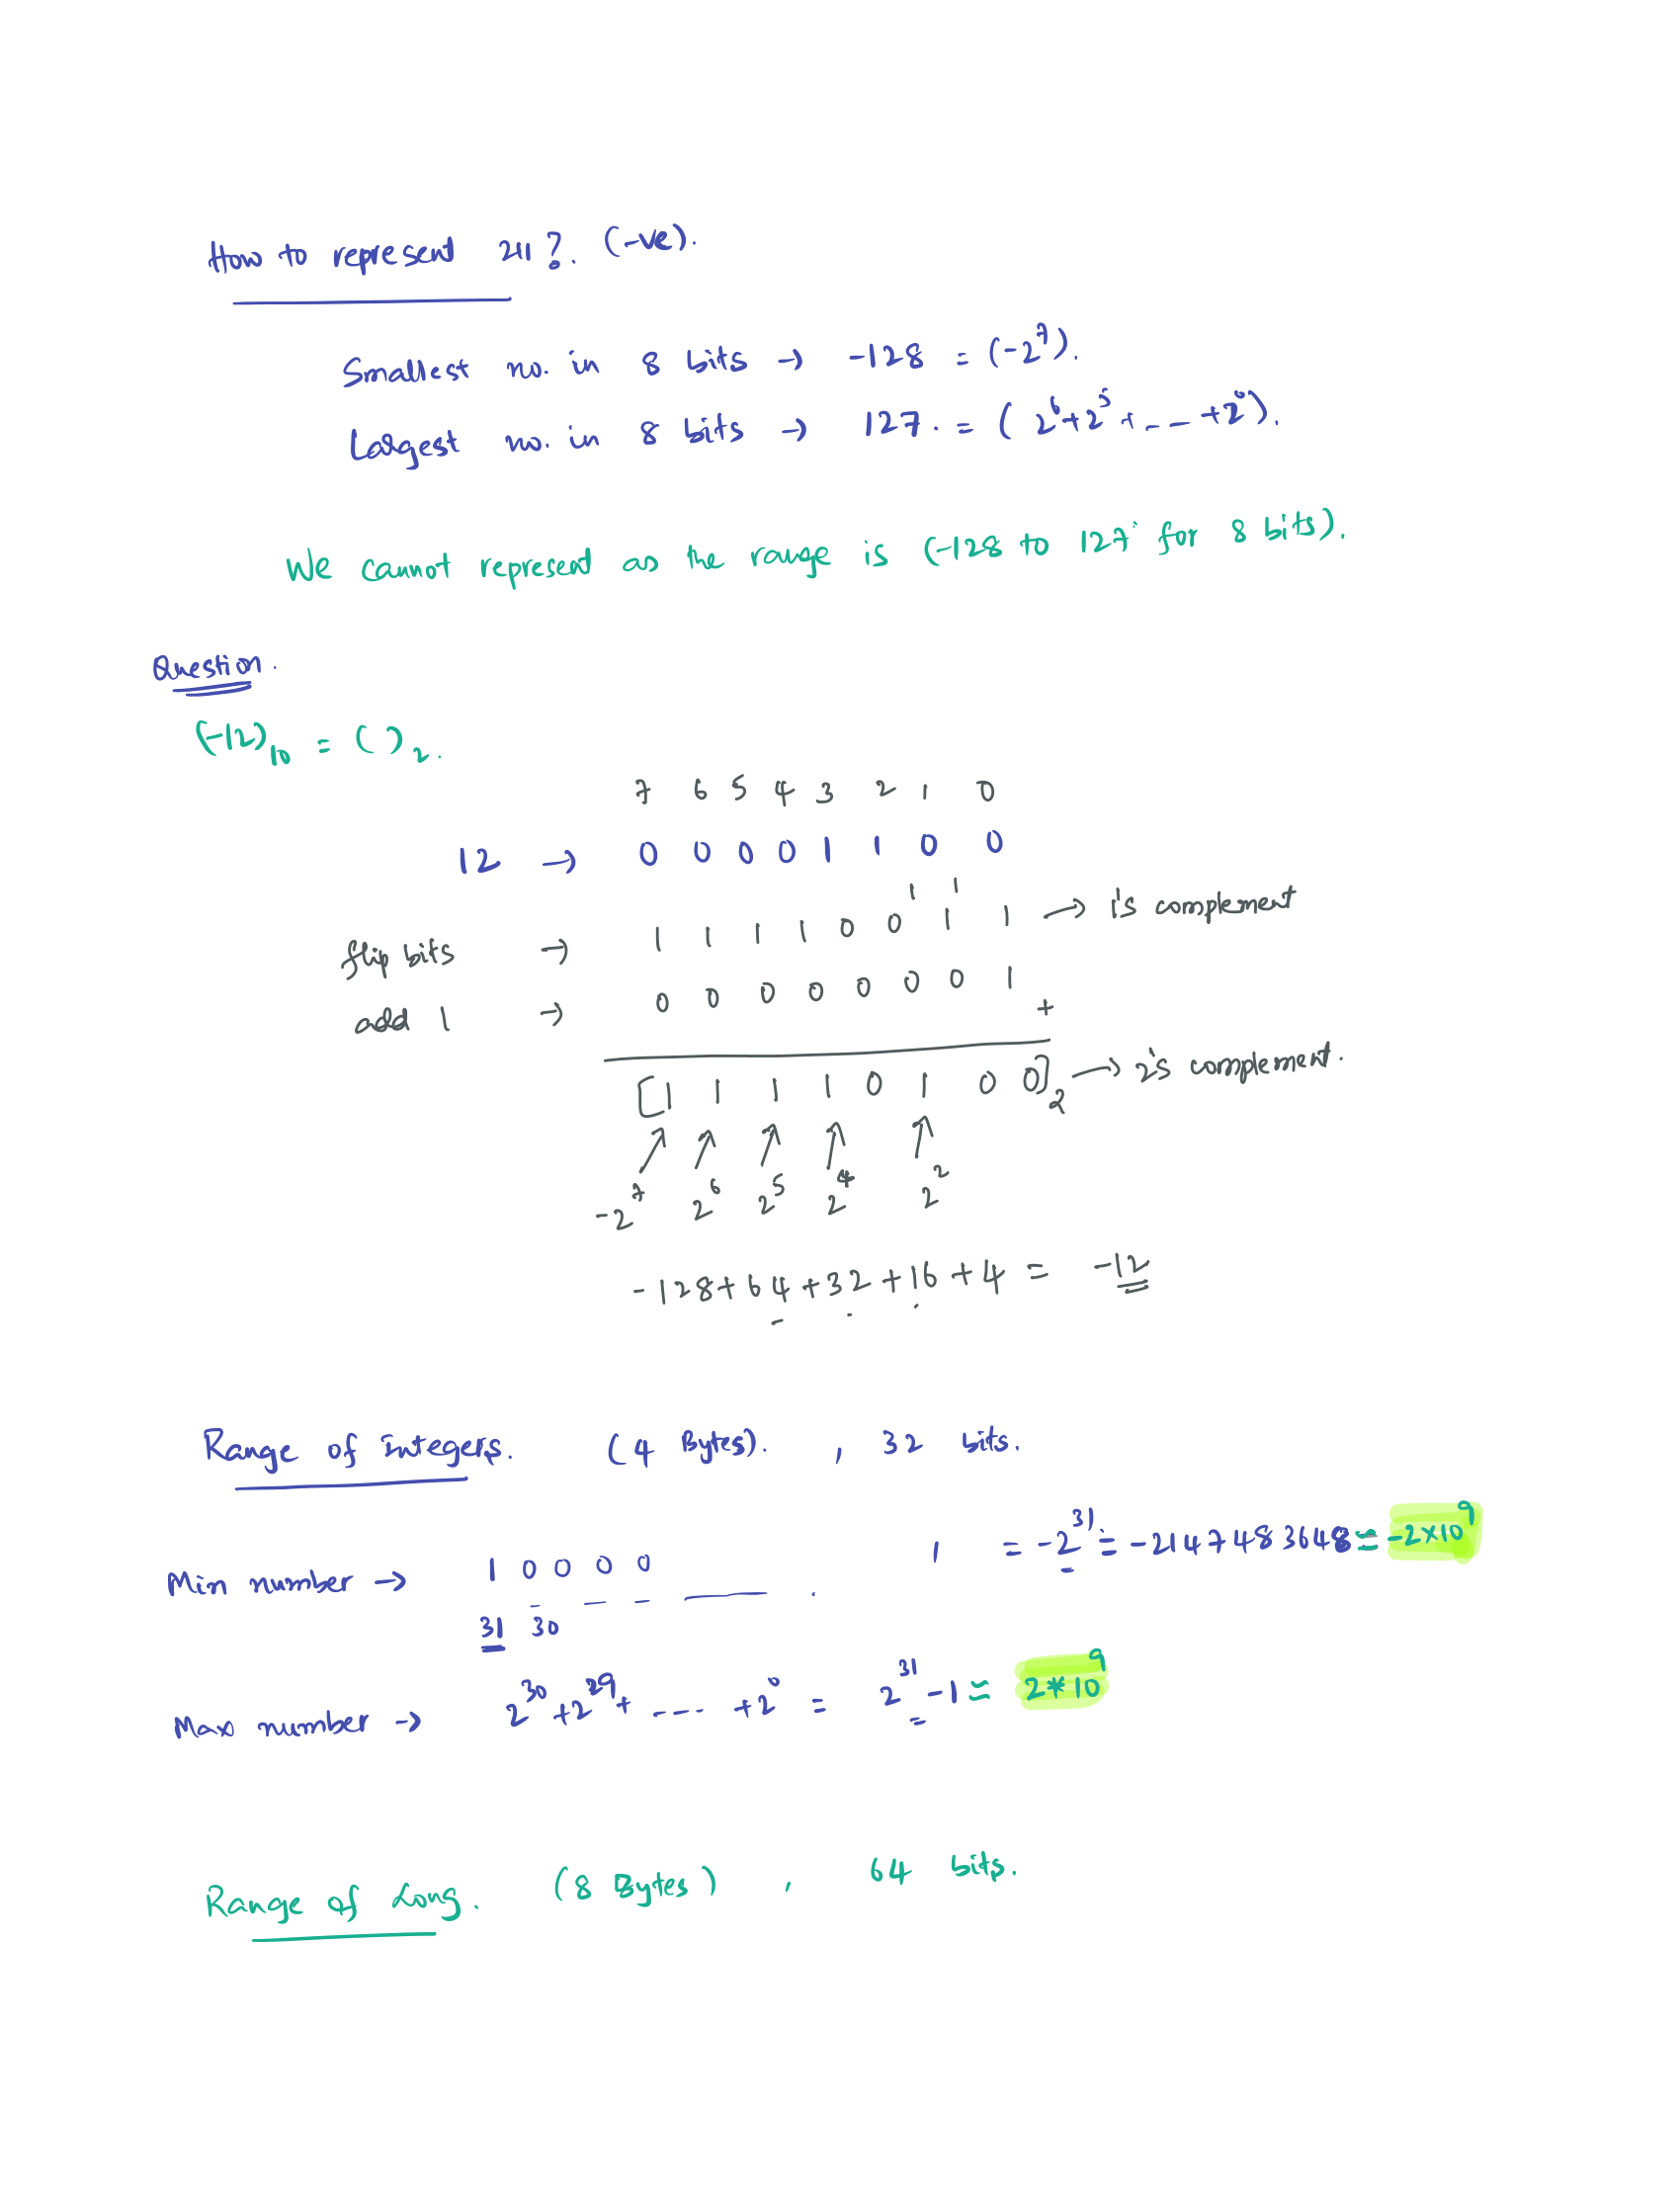 How to represent 211?. (-ve).
Smallest no. in 8 bits → -128 = (-2⁷).
Largest no. in 8 bits → 127. = (2⁶+2⁵+---+2⁰).
We cannot represent as the range is (-128 to 127 for 8 bits).
Question.
(-12)₁₀ = ( )₂.
7 6 5 4 3 2 1 0
12 → 0 0 0 0 1 1 0 0
1 1
flip bits → 1 1 1 1 0 0 1 1 → 1's complement
add 1 → 0 0 0 0 0 0 0 1 +
[1 1 1 1 0 1 0 0]₂ → 2's complement.
-2⁷ 2⁶ 2⁵ 2⁴ 2²
-128+64+32+16+4 = -12
Range of integers. (4 Bytes). , 32 bits.
Min number → 1 0 0 0 0 , = -2³¹ = -2147483648 ≈ -2×10⁹
31 30
Max number → 2³⁰+2²⁹+ ---- +2⁰ = 2³¹-1 ≈ 2*10⁹
Range of Long. (8 Bytes) , 64 bits.